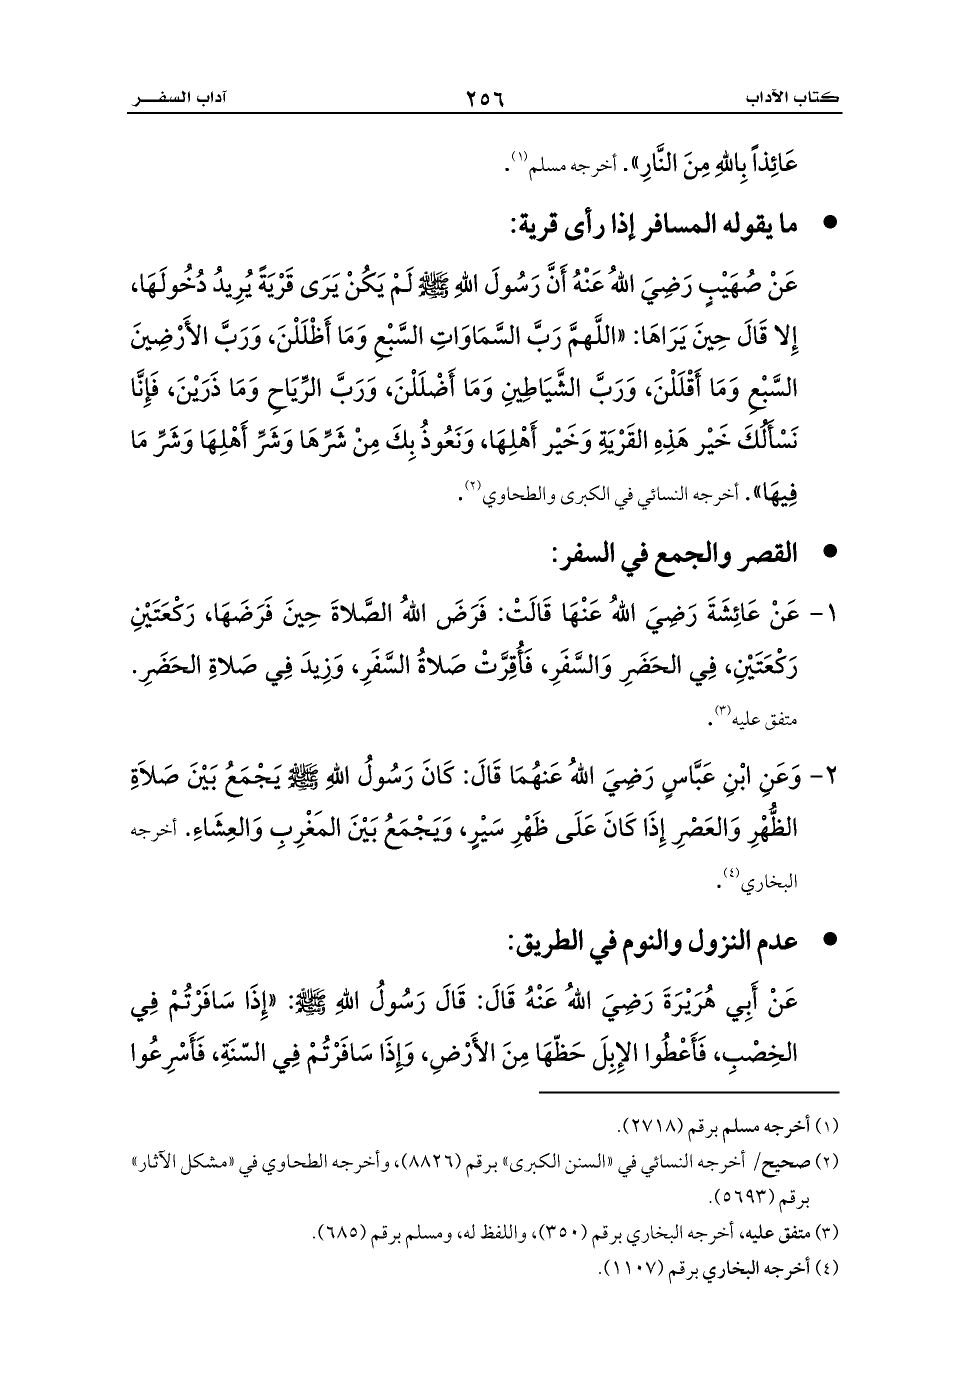 كتاب الآداب ٢٥٦ آداب السفـــر
عَائِذاً بِاللهِ مِنَ النَّارِ». أخرجه مسلم(١).
● ما يقوله المسافر إذا رأى قرية:
عَنْ صُهَيْبٍ رَضِيَ اللهُ عَنْهُ أَنَّ رَسُولَ اللهِ ﷺ لَمْ يَكُنْ يَرَى قَرْيَةً يُرِيدُ دُخُولَهَا،
إِلا قَالَ حِينَ يَرَاهَا: «اللَّهمَّ رَبَّ السَّمَاوَاتِ السَّبْعِ وَمَا أَظْلَلْنَ، وَرَبَّ الأَرْضِينَ
السَّبْعِ وَمَا أَقْلَلْنَ، وَرَبَّ الشَّيَاطِينِ وَمَا أَضْلَلْنَ، وَرَبَّ الرِّيَاحِ وَمَا ذَرَيْنَ، فَإِنَّا
نَسْأَلُكَ خَيْر هَذِهِ القَرْيَةِ وَخَيْر أَهْلِهَا، وَنَعُوذُ بِكَ مِنْ شَرِّهَا وَشَرِّ أَهْلِهَا وَشَرِّ مَا
فِيهَا». أخرجه النسائي في الكبرى والطحاوي(٢).
● القصر والجمع في السفر:
١- عَنْ عَائِشَةَ رَضِيَ اللهُ عَنْهَا قَالَتْ: فَرَضَ اللهُ الصَّلاةَ حِينَ فَرَضَهَا، رَكْعَتَيْنِ
رَكْعَتَيْنِ، فِي الحَضَرِ وَالسَّفَرِ، فَأُقِرَّتْ صَلاةُ السَّفَرِ، وَزِيدَ فِي صَلاةِ الحَضَرِ.
متفق عليه(٣).
٢- وَعَنِ ابْنِ عَبَّاسٍ رَضِيَ اللهُ عَنهُمَا قَالَ: كَانَ رَسُولُ اللهِ ﷺ يَجْمَعُ بَيْنَ صَلاَةِ
الظُّهْرِ وَالعَصْرِ إِذَا كَانَ عَلَى ظَهْرِ سَيْرٍ، وَيَجْمَعُ بَيْنَ المَغْرِبِ وَالعِشَاءِ. أخرجه
البخاري(٤).
● عدم النزول والنوم في الطريق:
عَنْ أَبِي هُرَيْرَةَ رَضِيَ اللهُ عَنْهُ قَالَ: قَالَ رَسُولُ اللهِ ﷺ: «إِذَا سَافَرْتُمْ فِي
الخِصْبِ، فَأَعْطُوا الإِبِلَ حَظَّهَا مِنَ الأَرْضِ، وَإِذَا سَافَرْتُمْ فِي السَّنَةِ، فَأَسْرِعُوا
(١) أخرجه مسلم برقم (٢٧١٨).
(٢) صحيح/ أخرجه النسائي في «السنن الكبرى» برقم (٨٨٢٦)، وأخرجه الطحاوي في «مشكل الآثار»
برقم (٥٦٩٣).
(٣) متفق عليه، أخرجه البخاري برقم (٣٥٠)، واللفظ له، ومسلم برقم (٦٨٥).
(٤) أخرجه البخاري برقم (١١٠٧).